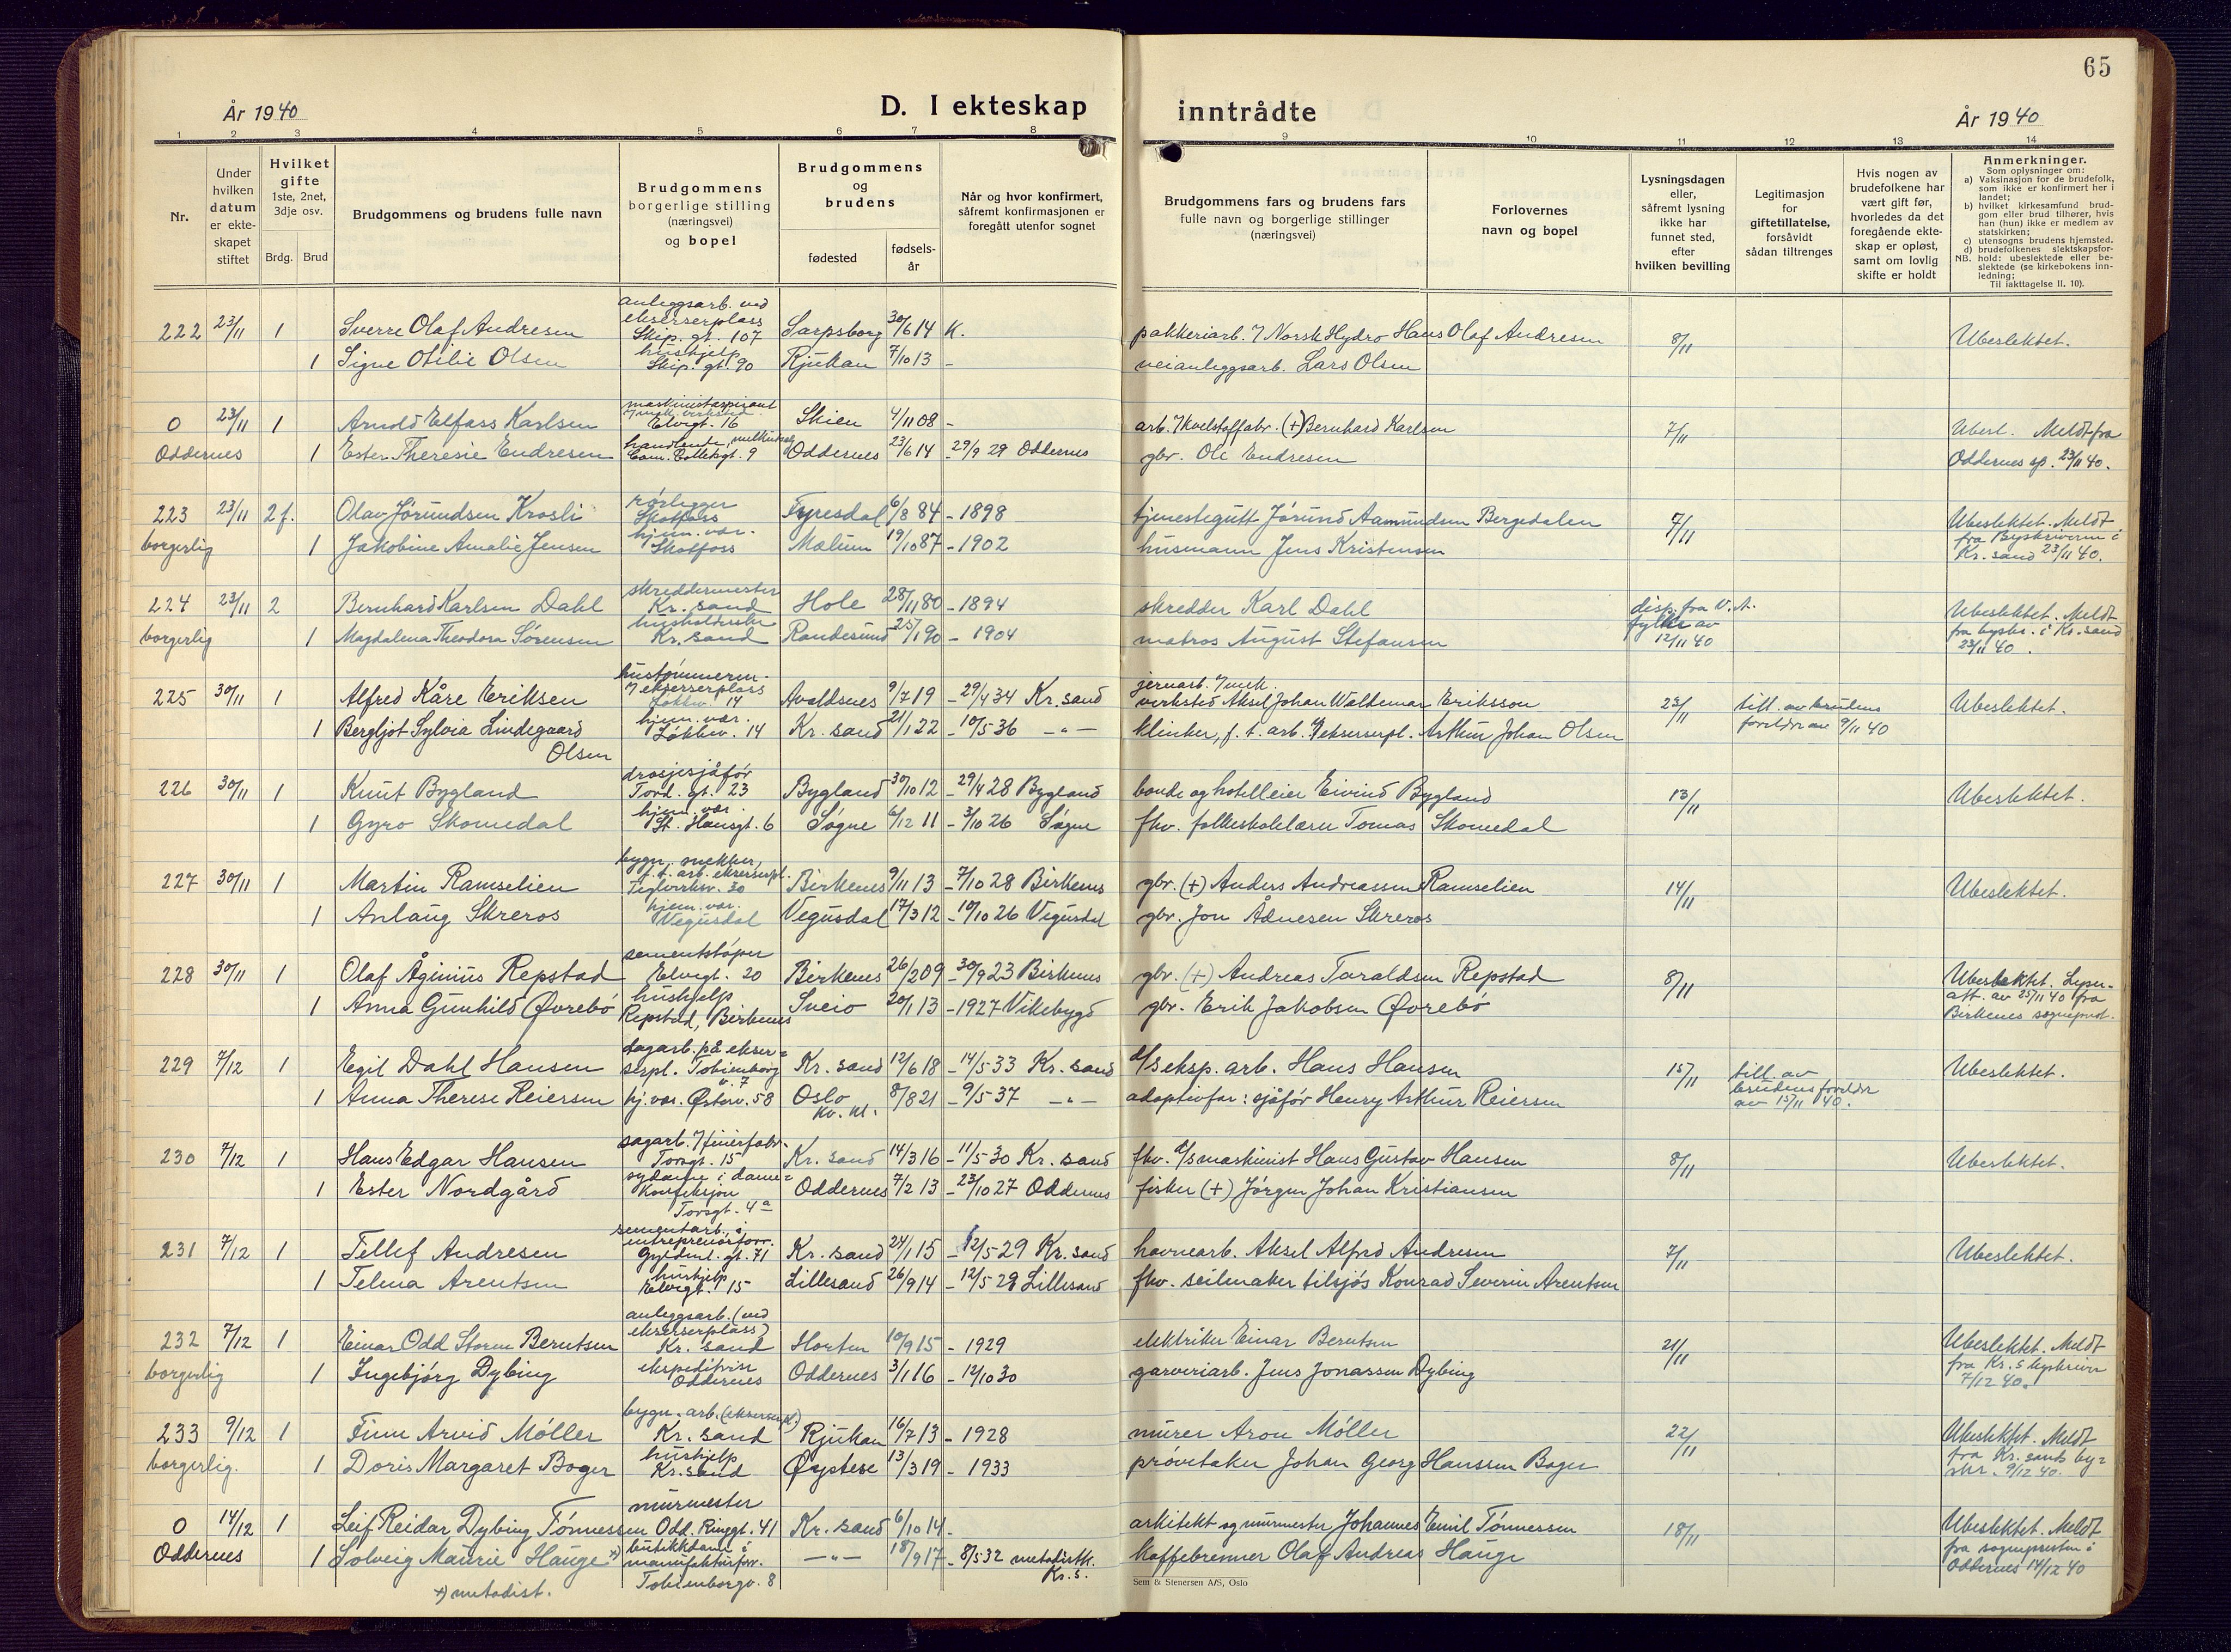 65
År 1940
D. I ekteskap
inntrådte
År 1940
1 2 3 4 5 6 7 8 9 10 11 12 13 14
Nr.
Under hvilken datum er ekteskapet stiftet
Hvilket gifte
1ste, 2net, 3dje osv.
Brdg. Brud
Brudgommens og brudens fulle navn
Brudgommens borgerlige stilling (næringsvei) og bopel
Brudgommens og brudens
fødested
fødsels-år
Når og hvor konfirmert, såfremt konfirmasjonen er foregått utenfor sognet
Brudgommens fars og brudens fars fulle navn og borgerlige stillinger (næringsvei)
Forlovernes navn og bopel
Lysningsdagen eller, såfremt lysning ikke har funnet sted, efter hvilken bevilling
Legitimasjon for giftetillatelse, forsåvidt sådan tiltrenges
Hvis nogen av brudefolkene har vært gift før, hvorledes da det foregående ekteskap er opløst, samt om lovlig skifte er holdt
Anmerkninger.
Som oplysninger om:
a) Vaksinasjon for de brudefolk, som ikke er konfirmert her i landet;
b) hvilket kirkesamfund brudgom eller brud tilhører, hvis han (hun) ikke er medlem av statskirken;
c) utensogns brudens hjemsted.
d) brudefolkenes slektskapsforhold: ubeslektede eller beslektede (se kirkebokens innledning;
NB.
Til iakttagelse II. 10).
222 23/11 1 Sverre Olaf Andresen anleggsarb. ved ekserserplass Skip. gt. 107 Sarpsborg 30/6 14 K. pakkeriarb. v/ Norsk Hydro Hans Olaf Andresen 8/11 Ubeslektet.
1 Signe Otilie Olsen hushjelp Skip. gt. 90 Rjukan 7/10 13 - veianleggsarb. Lars Olsen
0 23/11 1 Arnold Elfass Karlsen maskinistaspirant Elvegt. 16 Skien 4/11 08 - arb. v/ kvelstoffabr. (+) Bernhard Karlsen 7/11 Ubesl. Meldt fra
Oddernes 1 Ester Theresie Endresen handlende, Cam. Colletsgt. 9 Oddernes 23/6 14 29/9 29 Oddernes gbr. Ole Endresen Oddernes sp. 23/11 40.
223 23/11 2 f. Olav Jørundsen Krosli rørlegger Skotfoss Fyresdal 6/8 84 - 1898 tjenestegutt Jørund Aamundsen Bergedalen 7/11 Ubeslektet. Meldt
borgerlig 1 Jakobine Amalie Jensen hjem. vær. Skotfoss Mælum 19/10 87 - 1902 husmann Jens Kristensen fra Byskriveren i Kr. sand 23/11 40.
224 23/11 2 Bernhard Karlsen Dahl skreddermester Kr. sand Hole 28/11 80 - 1894 skredder Karl Dahl disp. fra V. A. fylke av 12/11 40 Ubeslektet. Meldt
borgerlig 1 Magdalena Theodora Sørensen husholderske Kr. sand Randesund 25/1 90 - 1904 matros August Stefansen fra byskr. i Kr. sand 23/11 40.
225 30/11 1 Alfred Kåre Eriksen hustømmerm. v/ ekserserplass Løkkev. 14 Avaldsnes 9/7 19 - 29/4 34 Kr. sand jernarb. v/ mek. verksted Aksel Johan Waldemar Eriksson 23/11 till. av brudens foreldre av 9/11 40 Ubeslektet.
1 Bergljot Sylvia Lindegaard Olsen hjem. vær. Løkkev. 14 Kr. sand 21/1 22 - 10/5 36 -"- klinker, f. t. arb. v/ ekserserpl. Arthur Johan Olsen
226 30/11 1 Knut Bygland drosjesjåfør Tord. gt. 23 Bygland 30/10 12 - 29/4 28 Bygland bonde og hotelleier Eivind Bygland 13/11 Ubeslektet.
1 Gyro Skomedal hjem. vær. St. Hansgt. 6 Søgne 6/12 11 - 3/10 26 Søgne fhv. folkeskolelærer Tomas Skomedal
227 30/11 1 Martin Ramselien bygn. snekker, f. t. arb. ekserserpl. Teglverksv. 30 Birkenes 9/11 13 - 7/10 28 Birkenes gbr. (+) Anders Andreassen Ramselien 14/11 Ubeslektet.
1 Anlaug Skreros hjem. vær. Vegusdal Vegusdal 17/3 12 - 10/10 26 Vegusdal gbr. Jon Ådnesen Skreros
228 30/11 1 Olaf Åginius Repstad sementstøper Elvegt. 20 Birkenes 26/2 09 - 30/9 23 Birkenes gbr. (+) Andreas Taraldsen Repstad 8/11 Ubeslektet. Lysn.
1 Anna Gunhild Øvrebø hushjelp Repstad, Birkenes Sveio 20/1 13 - 1927 Vikebygd gbr. Erik Jakobsen Øvrebø att. av 25/11 40 fra Birkenes sogneprest.
229 7/12 1 Egil Dahl Hansen lagarb. på ekserserpl. Tobienborg v. 7 Kr. sand 12/6 18 - 14/5 33 Kr. sand d/s eksp. arb. Hans Hansen 15/11 till. av brudens foreldre av 15/11 40. Ubeslektet.
1 Anna Therese Reiersen hj. vær. Østerv. 58 Oslo Kv. kl. 8/8 21 - 9/5 37 -"- adoptivfar: sjåfør Henry Arthur Reiersen
230 7/12 1 Hans Edgar Hansen sagarb. v/ finérfabr. Torvgt. 15 Kr. sand 14/3 16 - 11/5 30 Kr. sand fhv. d/s maskinist Hans Gustav Hansen 8/11 Ubeslektet.
1 Ester Nordgård sydame i damekonfeksjon Torvgt. 4a Oddernes 7/2 13 - 23/10 27 Oddernes fisker (+) Jørgen Johan Kristiansen
231 7/12 1 Tellef Andresen sementarb. i entreprenørforr. Gyldenl. gt. 71 Kr. sand 24/1 15 - 12/5 29 Kr. sand havnearb. Aksel Alfred Andresen 7/11 Ubeslektet.
1 Telma Arentsen hushjelp Elvegt. 15 Lillesand 26/9 14 - 12/5 29 Lillesand fhv. seilmaker tilsjøs Konrad Severin Arentsen
232 7/12 1 Einar Odd Storm Berntsen anleggsarb. (ved ekserserplass) Kr. sand Horten 10/9 15 - 1929 elektriker Einar Berntsen 21/11 Ubeslektet. Meldt
borgerlig 1 Ingebjørg Dybing ekspeditrise Oddernes Oddernes 3/1 16 - 12/10 30 garveriarb. Jens Jonassen Dybing fra Kr. s byskriver 7/12 40.
233 9/12 1 Finn Arvid Møller bygn. arb. (ekserserpl.) Kr. sand Rjukan 16/7 13 - 1928 murer Aron Møller 22/11 Ubeslektet. Meldt
borgerlig. 1 Doris Margaret Boger hushjelp Kr. sand Øystese 13/3 19 - 1933 prøvetaker Johan Georg Hanssen Boger fra Kr. sands byskr. 9/12 40.
0 14/12 1 Leif Reidar Dybing Tønnessen murmester Odd. Ringgt. 41 Kr. sand 6/10 14 - arkitekt og murmester Johannes Emil Tønnessen 18/11 Ubeslektet. Meldt
Oddernes 1 Solveig Maurie Hauge x) butikkdame i manufakturforr. Tobienborgv. 8 -"- 18/9 17 - 8/5 32 metodistk. Kr. s. kaffebrenner Olaf Andreas Hauge fra sognepresten i Oddernes 14/12 40
x) metodist.
Sem & Stenersen A/S, Oslo